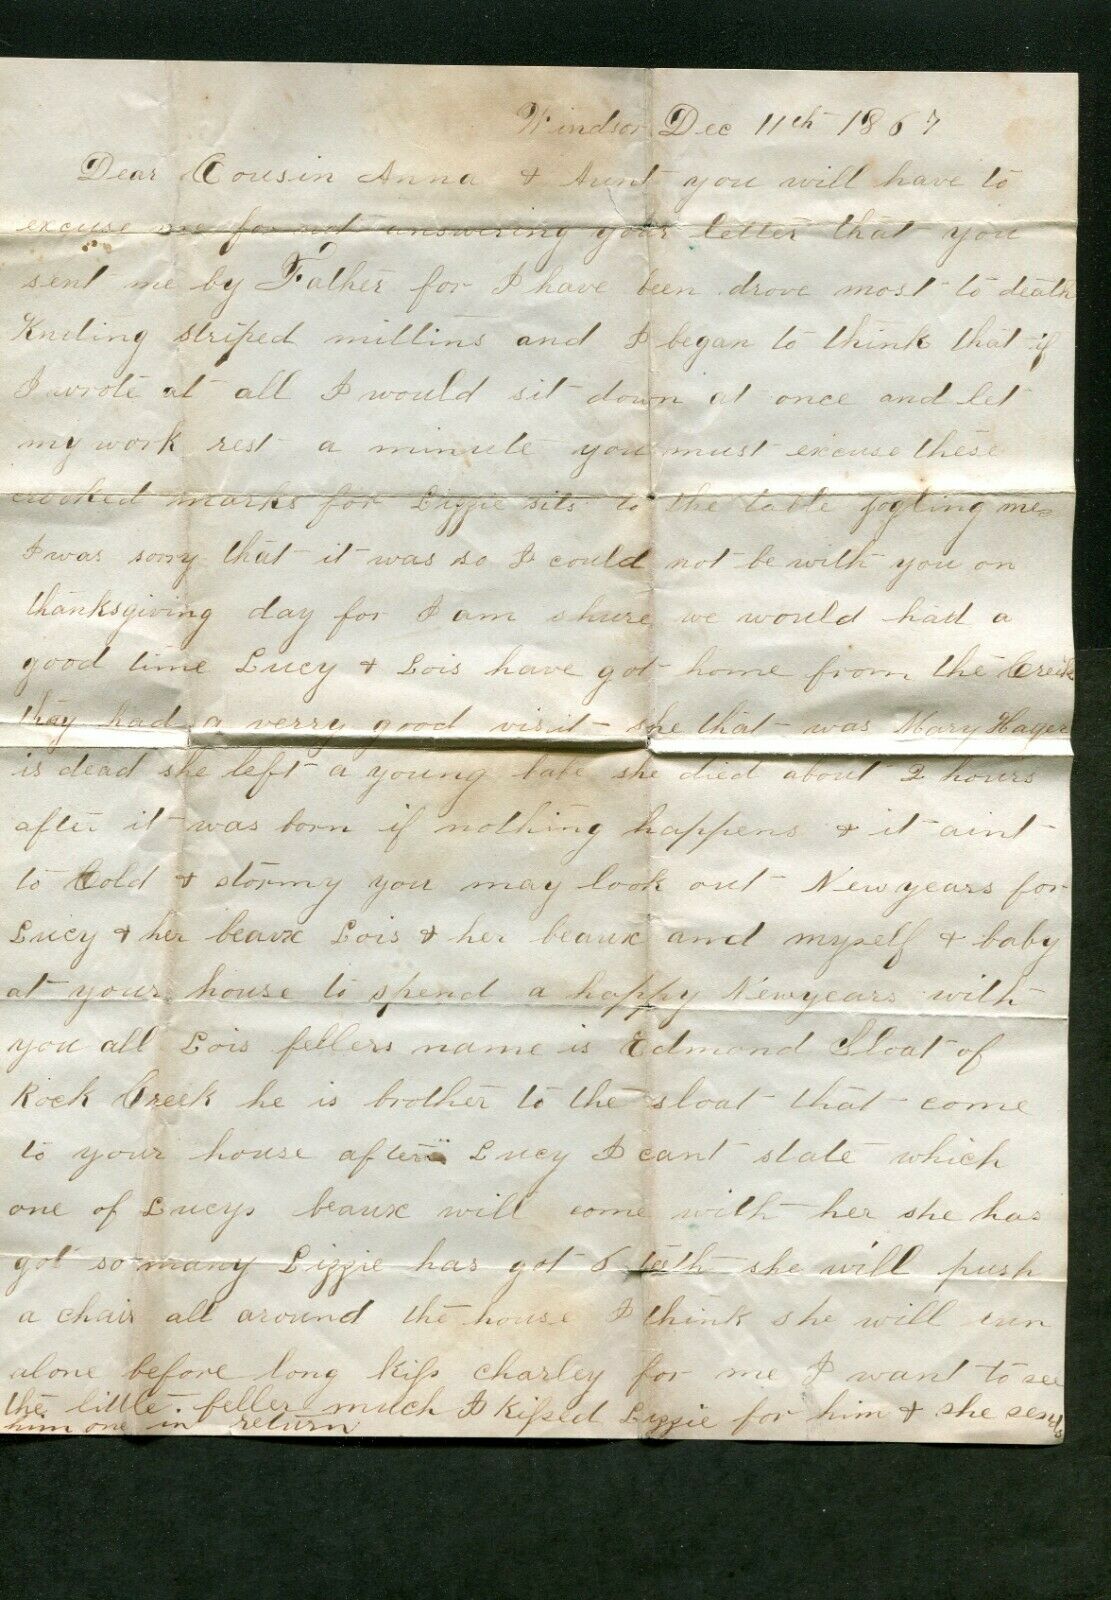 Windsor Dec 11th 1867
Dear Cousin Anna & Aunt you will have to
excuse me for not answering your letter that you
sent me by Father for I have been drove most to death
Kniting striped mittins and I began to think that if
I wrote at all I would sit down at once and let
my work rest a minute you must excuse these
crooked marks for Lizzie sits to the table jogling me
I was sorry that it was so I could not be with you on
thanksgiving day for I am shure we would had a
good time Lucy & Lois have got home from the Creek
thay had a verry good visit she that was Mary Hager
is dead she left a young babe she died about 2 hours
after it was born if nothing happens & it aint
to Cold & stormy you may look out Newyears for
Lucy & her beaux Lois & her beaux and myself & baby
at your house to spend a happy Newyears with
you all Lois fellers name is Edmond Sloat of
Rock Creek he is brother to the sloat that come
to your house after Lucy I cant state which
one of Lucys beaux will come with her she has
got so many Lizzie has got 6 teeth she will push
a chair all around the house I think she will run
alone before long kiss charley for me I want to see
the little feller much I kissed Lizzie for him & she sends
him one in return